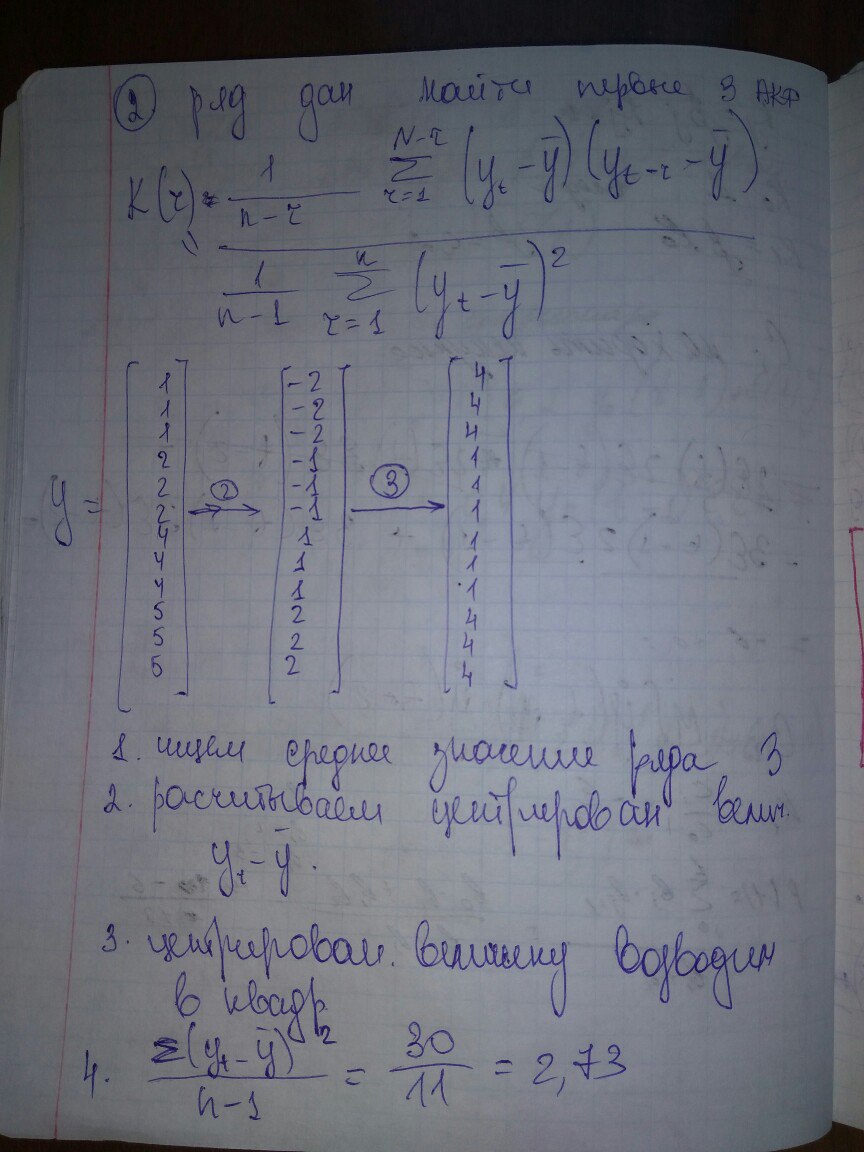 ② ряд дан найти первые 3 АКФ
K(τ) = 1/(n-τ) N-τ Σ τ=1 (yₜ - ȳ)(yₜ₋τ - ȳ)
1/(n-1) n Σ τ=1 (yₜ - ȳ)²
y =
1 -2 4
1 -2 4
1 -2 4
2 -1 1
2 -1 1
2 ② -1 ③ 1
4 1 1
4 1 1
4 1 1
5 2 4
5 2 4
5 2 4
1. ищем среднее значение ряда 3
2. расчитываем центрирован велич.
yₜ - ȳ.
3. центрирован. величину возводим
в квадр
4. Σ(yₜ - ȳ)²/(n-1) = 30/11 = 2,73